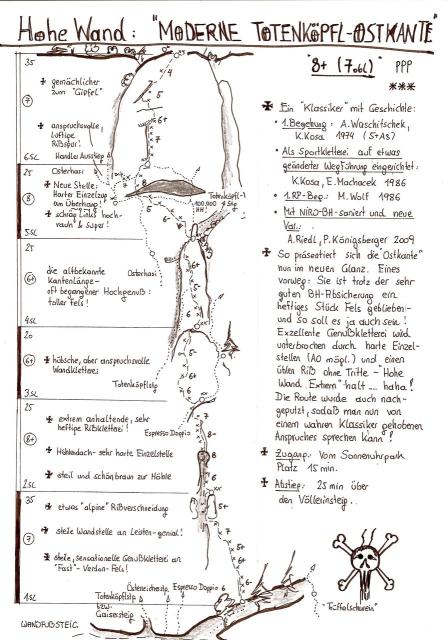 Hohe Wand: "MODERNE TOTENKÖPFL-OSTKANTE"
8+ (7a6L) PPP
***
Ein "Klassiker" mit Geschichte:
• 1. Begehung: A. Waschitschek,
K. Kosa 1974 (5+A3)
• Als Sportkletterei auf etwas
geänderter Wegführung eingerichtet:
K. Kosa, E. Machacek 1986
• 1. RP-Beg.: M. Wolf 1986
• Mit NIRO-BH-saniert und neue
Var.:
A. Riedl, P. Königsberger 2009
So präsentiert sich die "Ostkante"
nun im neuen Glanz. Eines
vorweg: Sie ist trotz der sehr
guten BH-Absicherung ein
heftiges Stück Fels geblieben-
und so soll es ja auch sein!
Exzellente Genußkletterei wird
unterbrochen durch harte Einzel-
stellen (A0 mögl.) und einen
üblen Riß ohne Tritte - "Hohe
Wand Extrem" halt .... haha!
Die Route wurde auch nach-
geputzt, sodaß man nun von
einem wahren Klassiker gehobenen
Anspruches sprechen kann!
Zugang: Vom Sonnenuhrpark
Platz 15 min.
Abstieg: 25 min über
den Völlerinsteig..
35
7
6SL
gemächlicher
zum "Gipfel"
anspruchsvolle,
luftige
Rißspur!
Handler Ausstieg
4
5
6+
25
8
5.SL
Osterhasi
Neue Stelle:
Harter Einzelzug
am Überhang!
schräg links hoch-
rauh & super!
8
6
5
Totenköpfl-
Stg
100.000
HH!
25
6+
4.SL
die altbekannte
Kantenlänge-
oft begangener Hochgenuß:
toller Fels!
BH!
Osterhasi
6
6+
6
20
6+
3.SL
hübsche, aber anspruchsvolle
Wandkletterei
Totenköpflstg
6
6+
25
8+
2.SL
extrem anhaltende, sehr
heftige Rißkletterei!
Höhlendach- sehr harte Einzelstelle
steil und schönbraun zur Höhle
Espresso Doppio
7
8-
8
8
35
7
1SL
etwas "alpine" Rißverschneidung
steile Wandstelle an Leisten-genial!
steile, sensationelle Genußkletterei an
"Fast"-Verdon-Fels!
5+
7
5
6-
6
Österreicherstg
Espresso Doppio
Totenköpflstg
bzw.
Gaisersteig
WANDFUßSTEIG